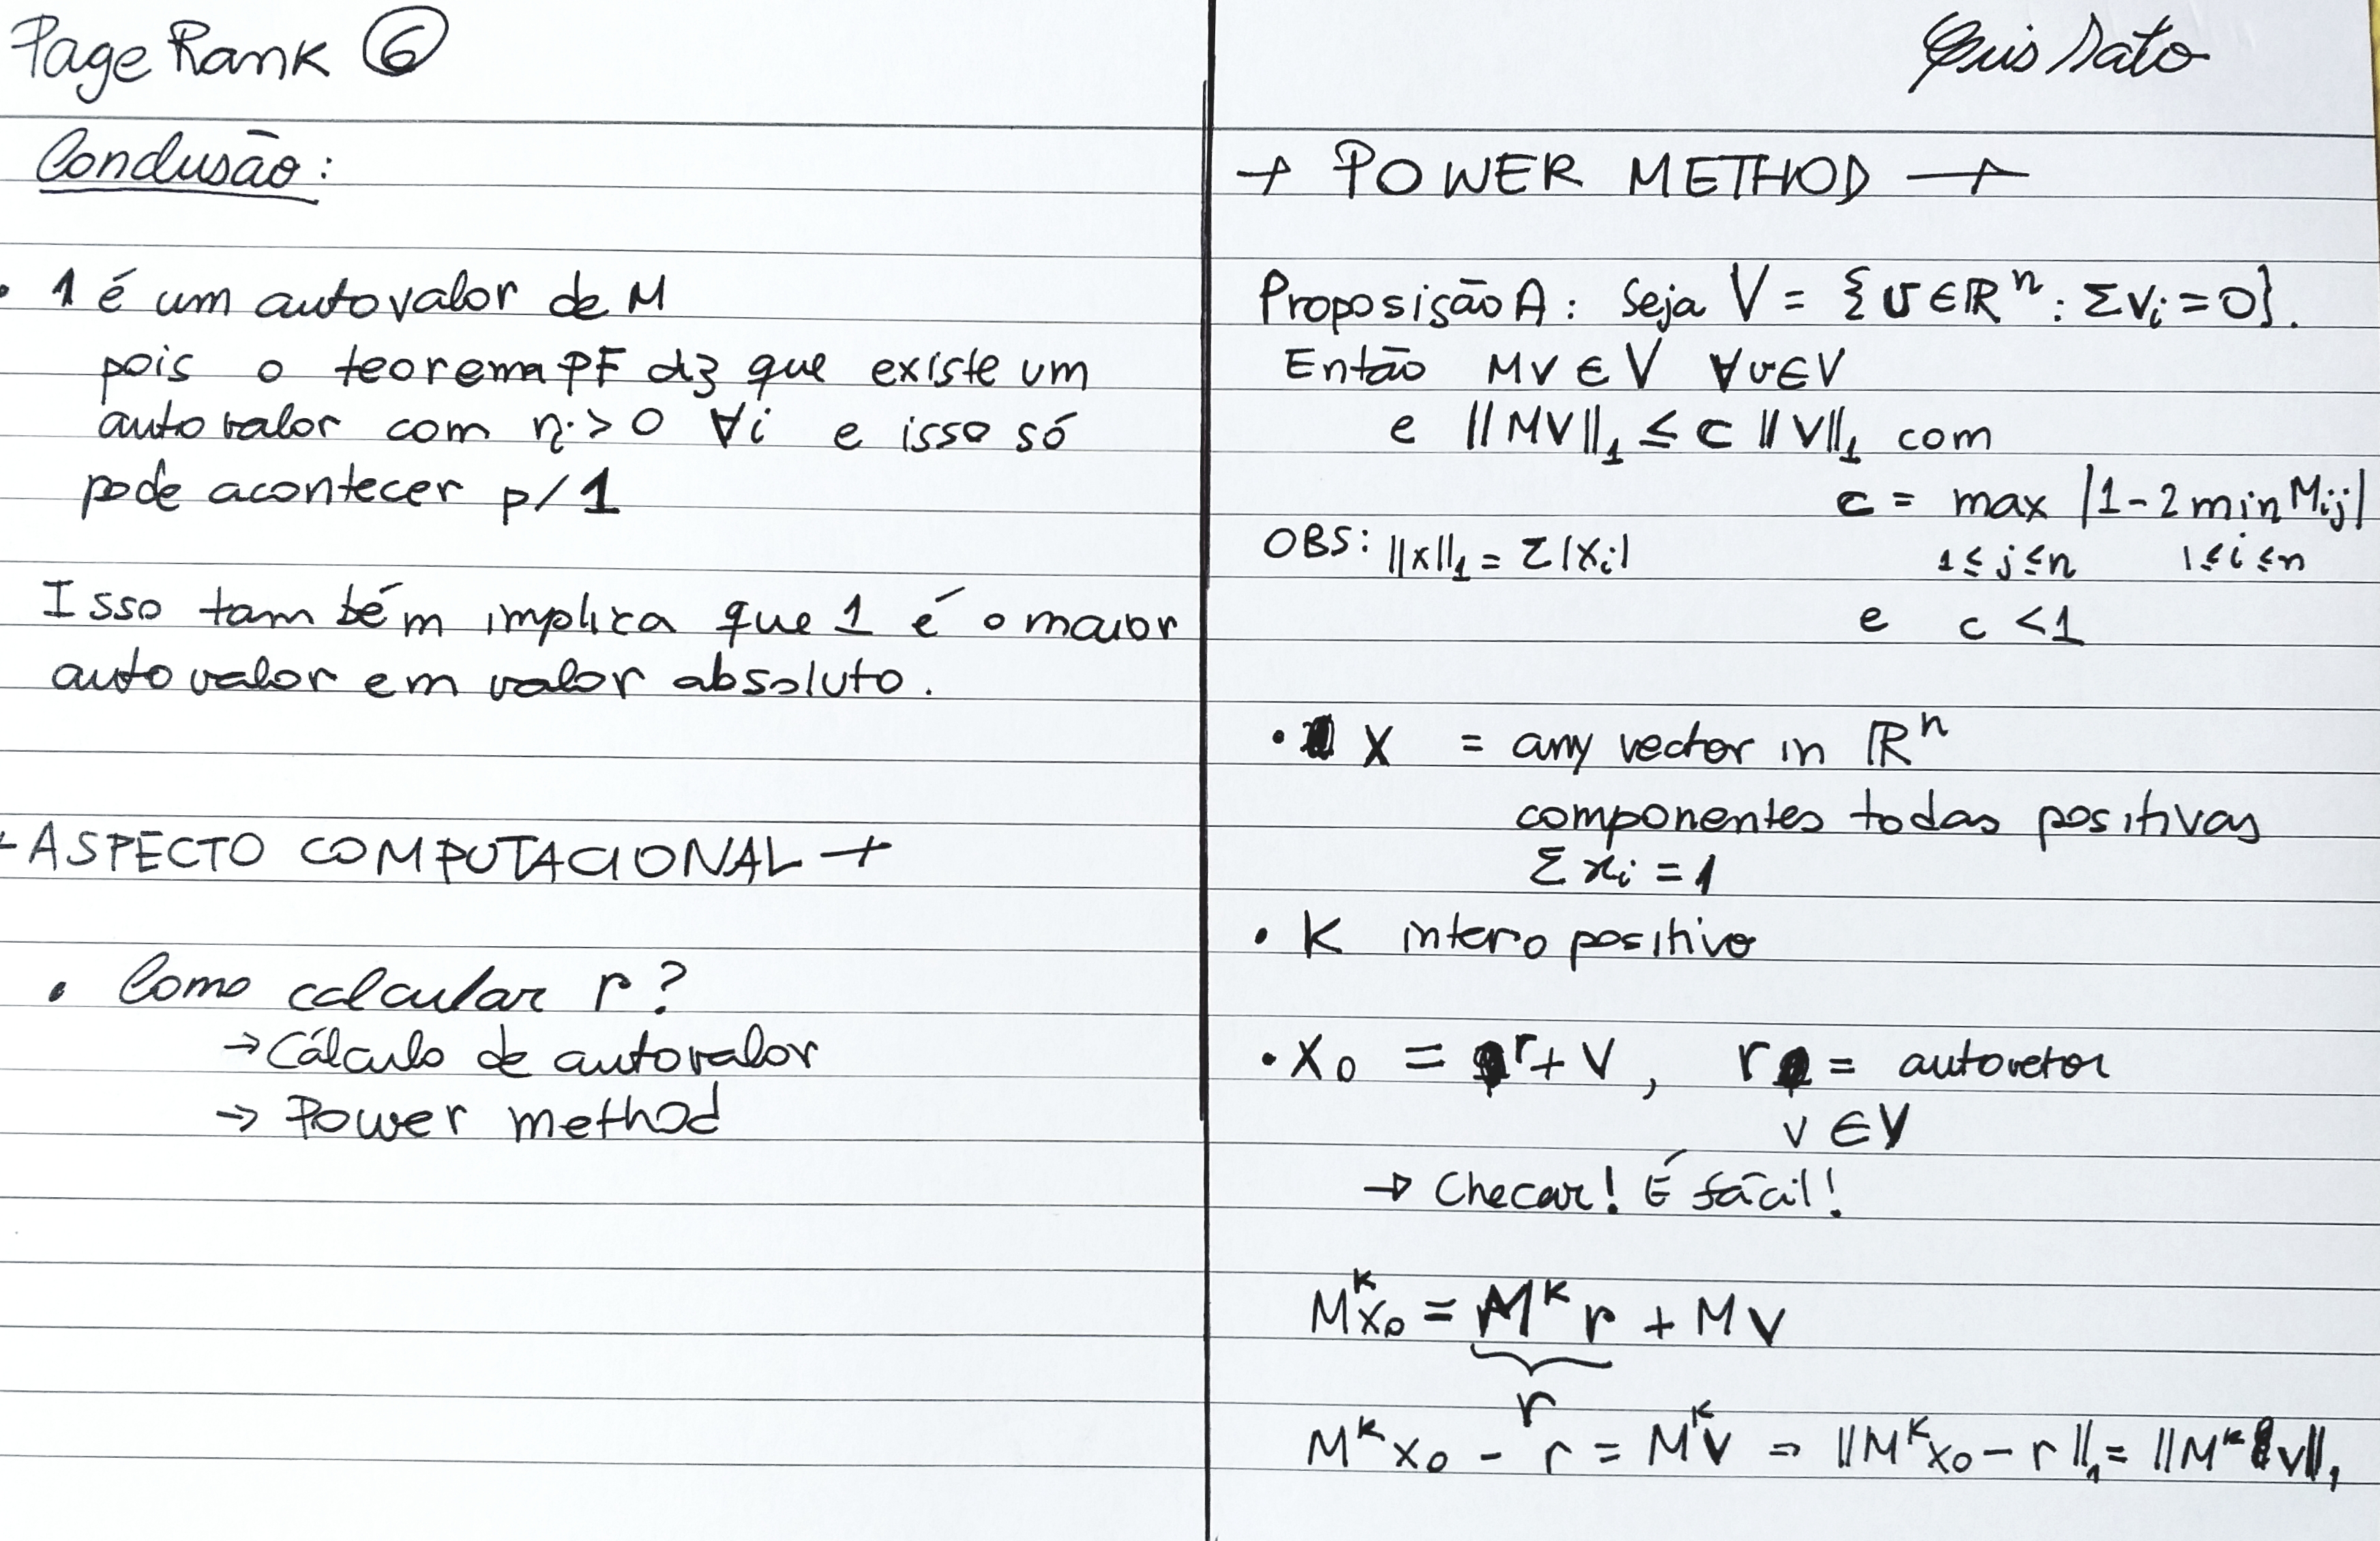 PageRank ⑥
Conclusão:
• 1 é um autovalor de M
pois o teorema PF diz que existe um
autovalor com ri > 0 ∀i e isso só
pode acontecer p/ 1
Isso também implica que 1 é o maior
autovalor em valor absoluto.
+ ASPECTO COMPUTACIONAL +
• Como calcular r?
→ Cálculo de autovalor
→ Power method
Luis Sato
+ POWER METHOD —+
Proposição A: Seja V = {v ∈ ℝⁿ : Σvᵢ = 0}.
Então Mv ∈ V ∀v∈V
e ||MV||₁ ≤ c ||V||₁ com
c = max |1 - 2 min Mij|
1≤j≤n 1≤i≤n
OBS: ||x||₁ = Σ|xᵢ|
e c < 1
• X = any vector in ℝⁿ
componentes todas positivas
Σxᵢ = 1
• K intero positivo
• X₀ = r + V, r = autovetor
v ∈ V
→ Checar! É fácil!
Mᴷx₀ = Mᴷ r + MV
r
Mᴷx₀ - r = MᴷV ⇒ ||Mᴷx₀ - r||₁ = ||Mᴷ v||₁